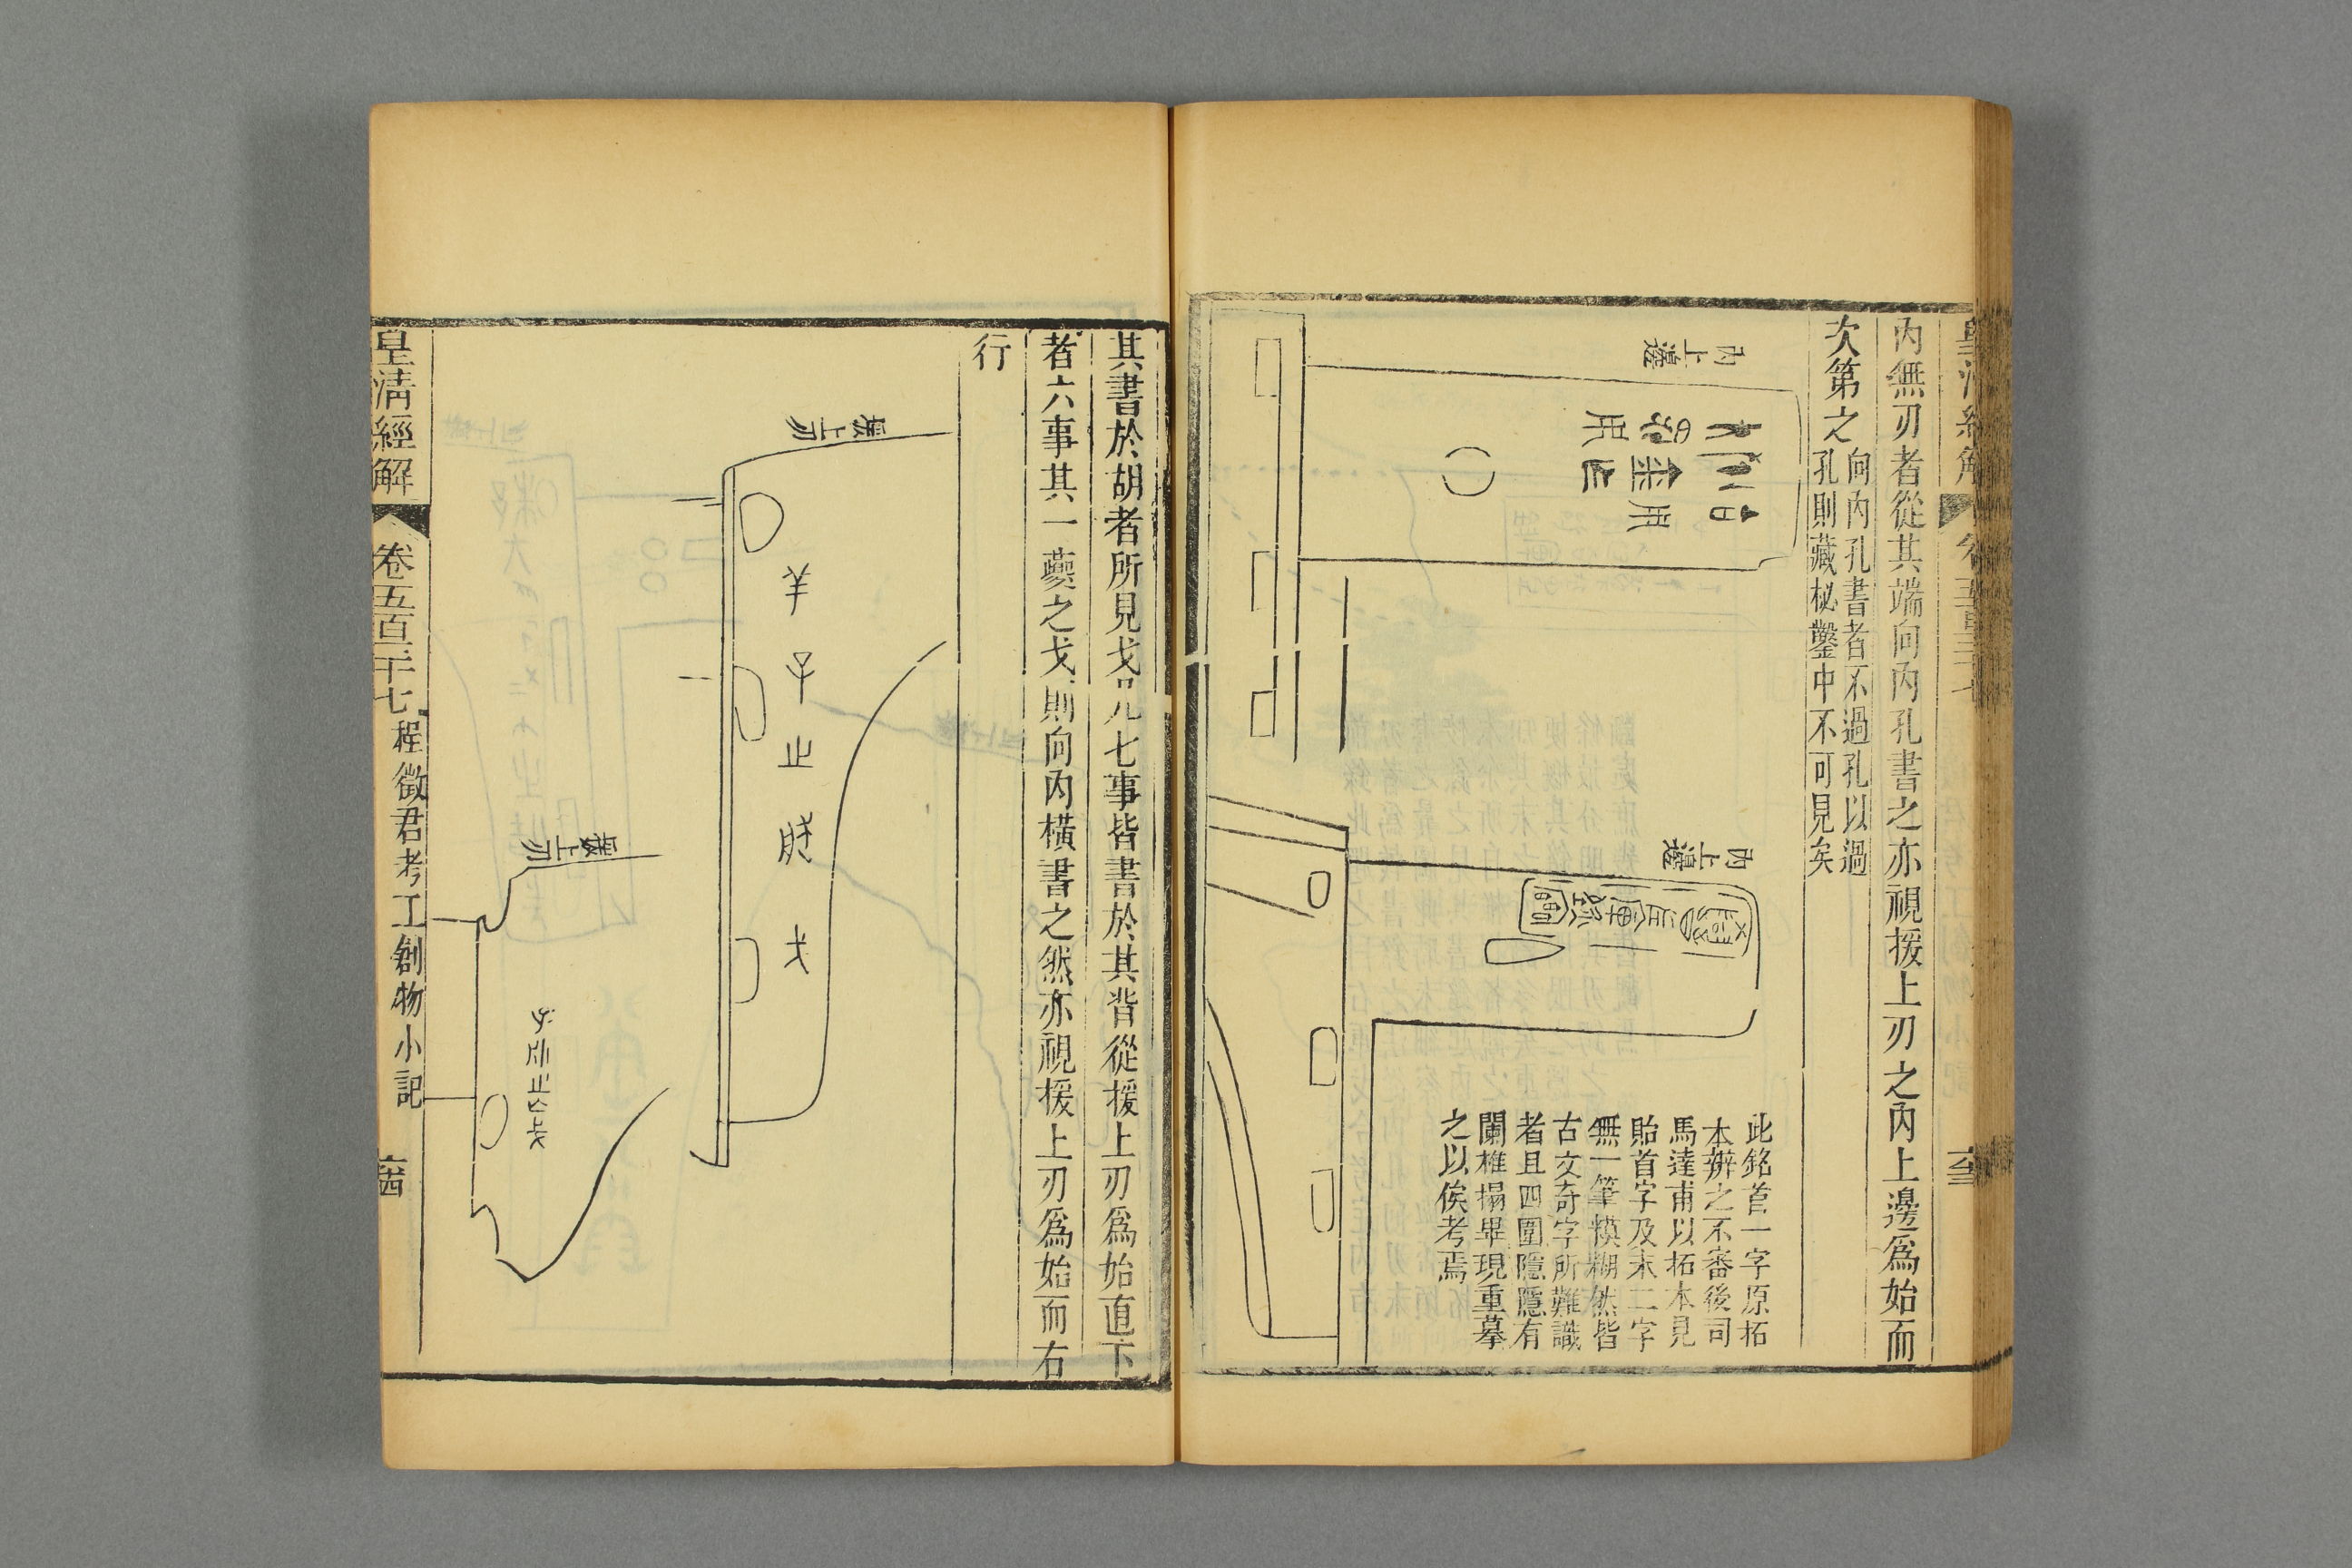 內無刃者從其端向內孔書之亦視援上刃之內上邊爲始而
次第之
向內孔書者不過孔以過
孔則藏柲鑿中不可見矣
內上邊
內上邊
此銘首一字原拓
本辦之不審後司
馬達甫以拓本見
貽首字及末二字
無一筆模糊然皆
古文奇字所難識
者且四圍隱隱有
闌椎搨畢現重摹
之以俟考焉
其書於胡者所見戈凡七事皆書於其背從援上刃爲始直下
者六事其一藥之戈則向內橫書之然亦視援上刃爲始而右
行
援上刃
羊子止
戈
援上刃
皇清經解
卷五百三十七
程徵君考工創物小記